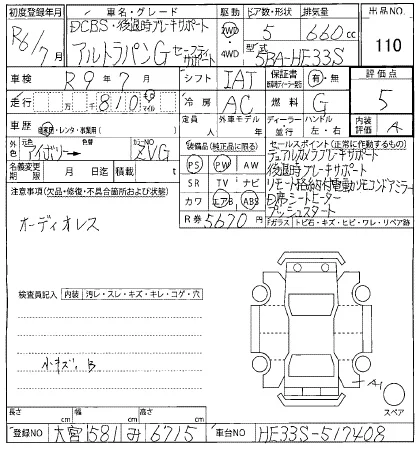 初度登録年月 車名・グレード 駆動 ドア数・形状 排気量 出品NO.
R6/7月 DCBS・後退時ブレーキサポート 2WD 5 660cc
アルトラパンG セーフティサポート 4WD 型式 5BA-HE33S 110
車検 R9年7月 シフト IAT 保証書 有・無 評価点
走行 万 千 810 km マイル 冷房 AC 燃料 G 5
車歴 自家用・レンタ・事業用( ) 定員 人 外車モデル 年 ディーラー 並行 ハンドル 左・右 内装評価 A
外色 アイボリー 色替 カラーNO ZVG
装備品(純正品に限る) セールスポイント(正常に作動するもの)
名義変更期限 月 日 積載 t
PS PW AW デュアルカメラブレーキサポート
後退時ブレーキサポート
注意事項(欠品・修復・不具合箇所および状態)
SR TV ナビ リモート格納付電動リモコンドアミラー
カワ エアB ABS D席シートヒーター
オーディオレス
R券 5670円 プッシュスタート
Fガラス トビ石・キズ・ヒビ・ワレ・リペア跡
検査員記入 内装 汚レ・スレ・キズ・キレ・コゲ・穴
小キズ、B
A1
スペア
長さ cm 幅 cm 高さ cm
登録NO 大宮 581 み 6715 車台NO HE33S-517408